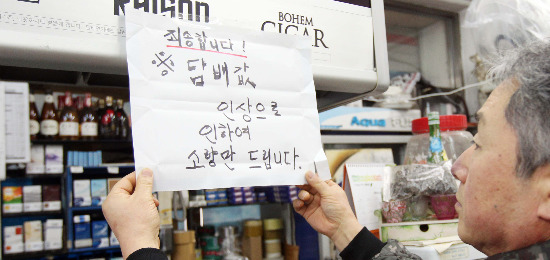 Raison
BOHEM
CIGAR
죄송합니다!
※ 담배값
인상으로
인하여
소량만 드립니다.
Aqua